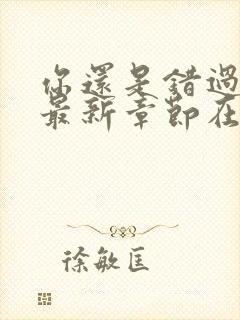 你還是錯過
最新章節在
徐敏匡